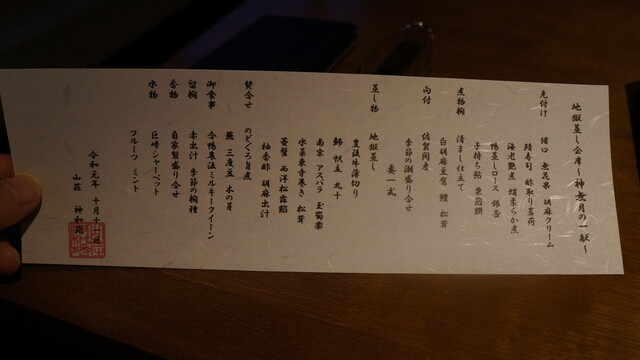 地獄蒸し会席〜神無月の一献〜
先付け 猪口 無花果 胡麻クリーム
鯖寿司 酢取り茗荷
海老艶煮 蛸柔らか煮
鴨蒸しロース 銀杏
子持ち鮎
煮物椀 清まし仕立て
白胡麻豆腐 鱧 松茸
向付 佐賀関産
季節の潮盛り合せ
妻一式
蒸し物 地獄蒸し
豊後牛薄切り
鰤 帆立 丸十
南京 アスパラ 玉蜀黍
水菜東寺巻き 松茸
西洋松露餡
柚香酢 胡麻出汁
焚合せ のどぐろ旨煮
蕪 三度豆 木の芽
御食事 合鴨農法ミルキークイーン
留椀 赤出汁 季節の椀種
香物 自家製盛り合せ
水物 巨峰シャーベット
フルーツ ミント
令和元年 十月十一日
山荘 神和苑